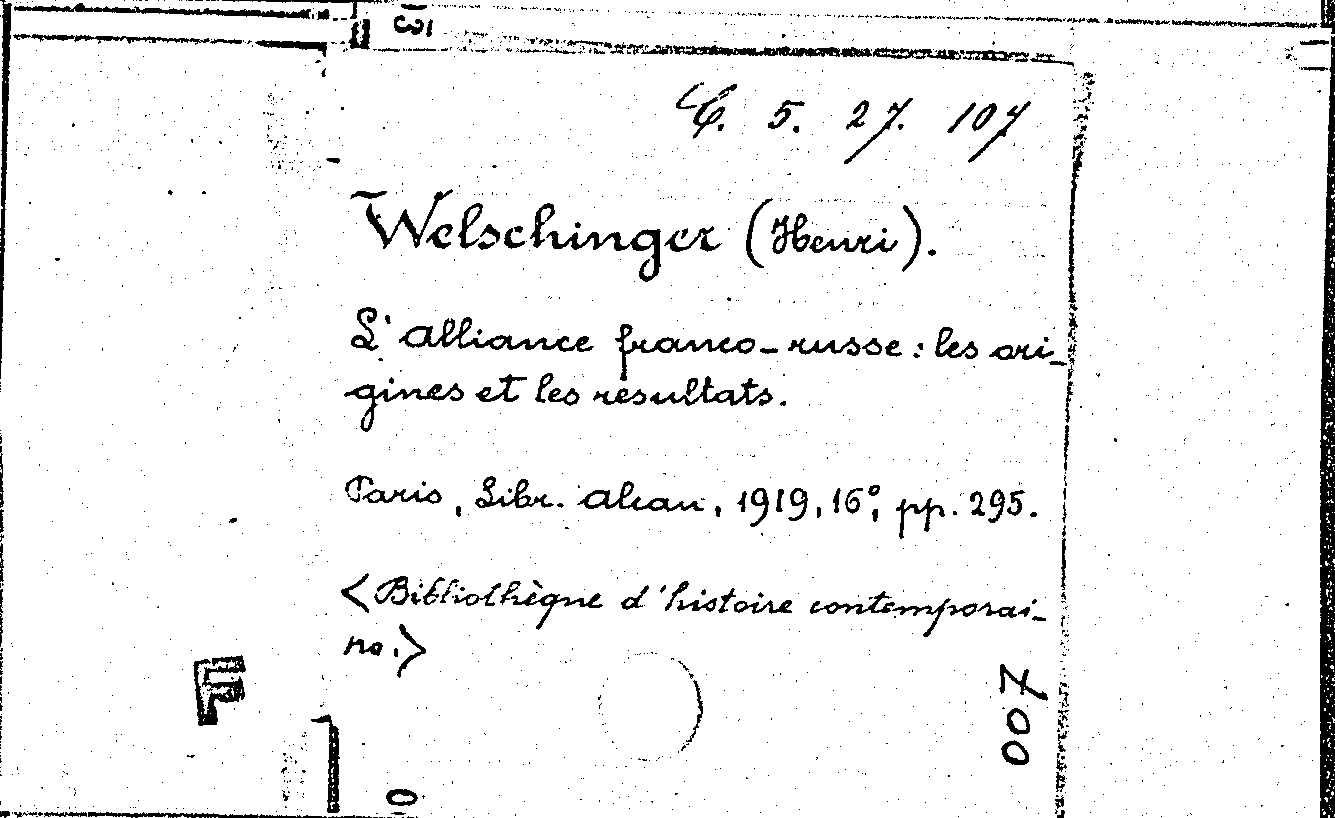 C. 5. 27. 107
Welschinger (Henri).
L'Alliance franco-russe: les ori-
gines et les résultats.
Paris, Libr. Alcan, 1919, 16°, pp. 295.
<Bibliothèque d'histoire contemporai-
ne.>
F
007